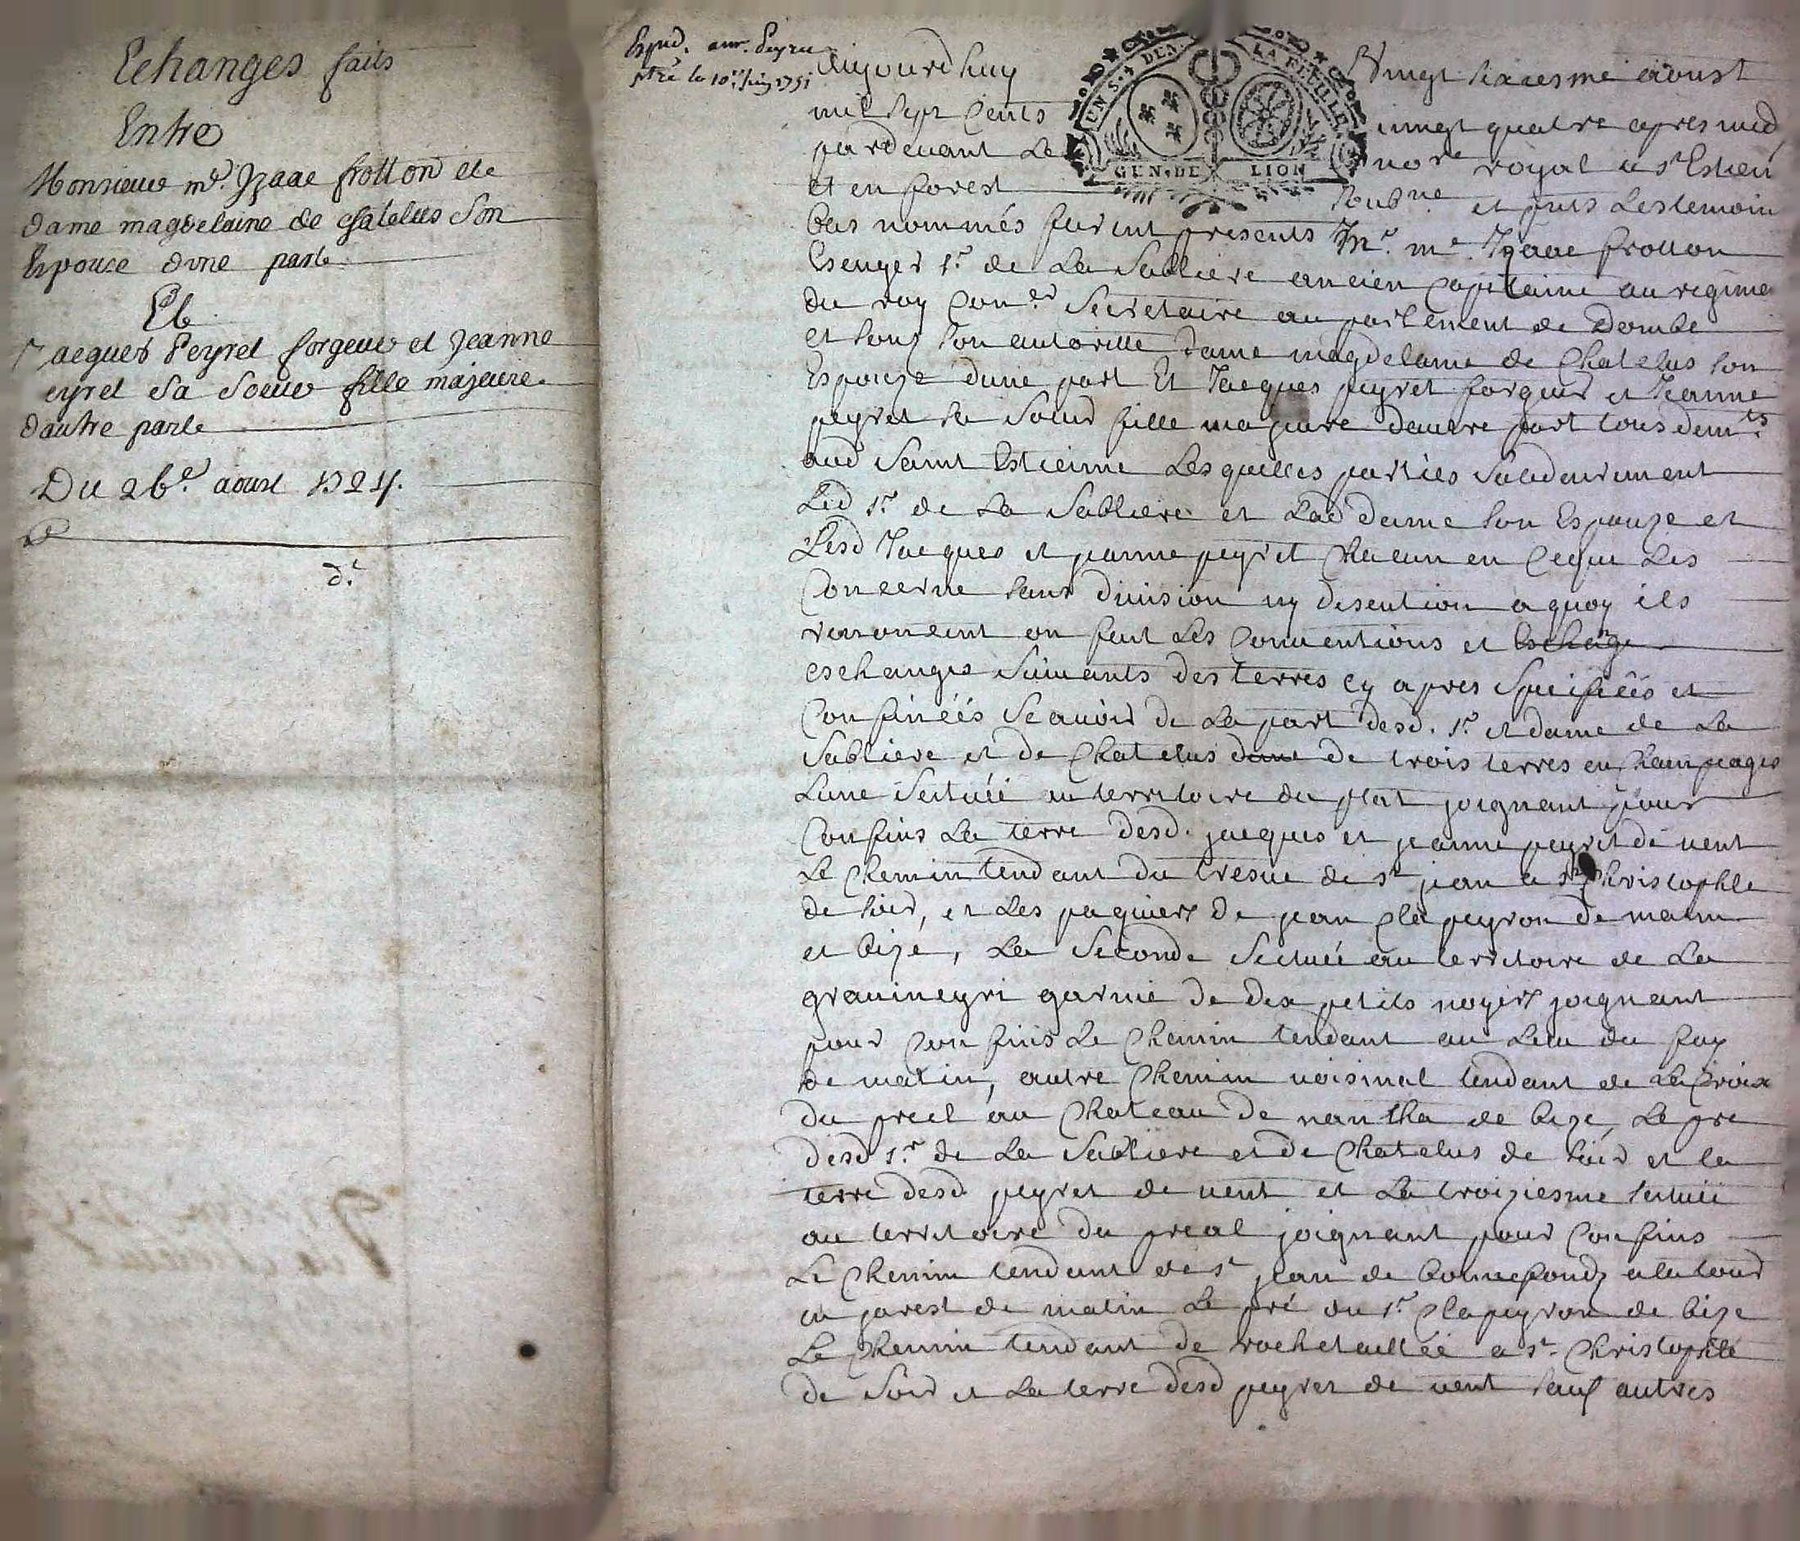 Echanges faits
Entre
Monsieur mr. Izaac frotton et
dame magdelaine de chatelus Son
Epouse d'une parte
Et
Jacques Peyret forgeur et Jeanne
eyret Sa Soeur fille majeure
d'autre parte
Du 26e. aoust 1724.
d.t
Exped. aud. Peyret
le 10e. juin 1751
aujourdhuy vingt sixiesme aoust
mil sept Cents vingt quatre apres midy
pardevant Le nore. royal a st Estien
et en forest soubne. et puis Les temoin
bas nommés furent presents Mr. me Izaac frotton
Escuyer sr. de La Sabliere ancien Capitaine au regime
du roy Coner Secretaire au parlement de Dombe
et soub son autoritte Dame magdelaine de Chatelus son
Espouze dune part Et Jacques peyret forgeur et Jeanne
peyret sa soeur fille majeure dautre part tous demts
aud Saint Estienne Lesquelles parties solidairement
Led sr. de La Sabliere et Lad dame son Espouze et
Lesd Jacques et jeanne peyret Chacun en Ceque Les
Concerne sans division ny discution a quoy ils
renoncent on fait Les Conventions et Eschange
eschanges Suivants des terres cy apres Specifiéés et
Confinéés Scavoir de La part desd. sr. et dame de La
Sabliere et de Chatelus dune de trois terres en Champeages
Lune Scituéé au territoire du plat joignant pour
Confins La terre desd. jacques et jeanne peyret de vent
Le Chemin tendant du tresve de st jean a st Christophle
de soir, et Les paquiers de jean Clapeyron de matin
et bize, La Seconde Scituéé au territoire de La
gravineyri garnie de dix petits noyers joignant
pour Confins Le Chemin tendant au Lieu du fay
de matin, autre Chemin voisinal tendant de La Croix
du preel au Chateau de nantha de bize, Le pre
desd sr. de La Sabliere et de Chatelus de soir et la
terre desd peyret de vent et La troiziesme scituéé
au territoire du preal joignant pour Confins
Le Chemin tendant de st jean de bonnefondz a la tour
en jarest de matin Le pré du sr. Clapeyron de bize
Le Chemin tendant de rochetailléé a st. Christophle
de Soir et La terre desd peyret de vent sauf autres
GEN. DE LION
LA FEUILLE